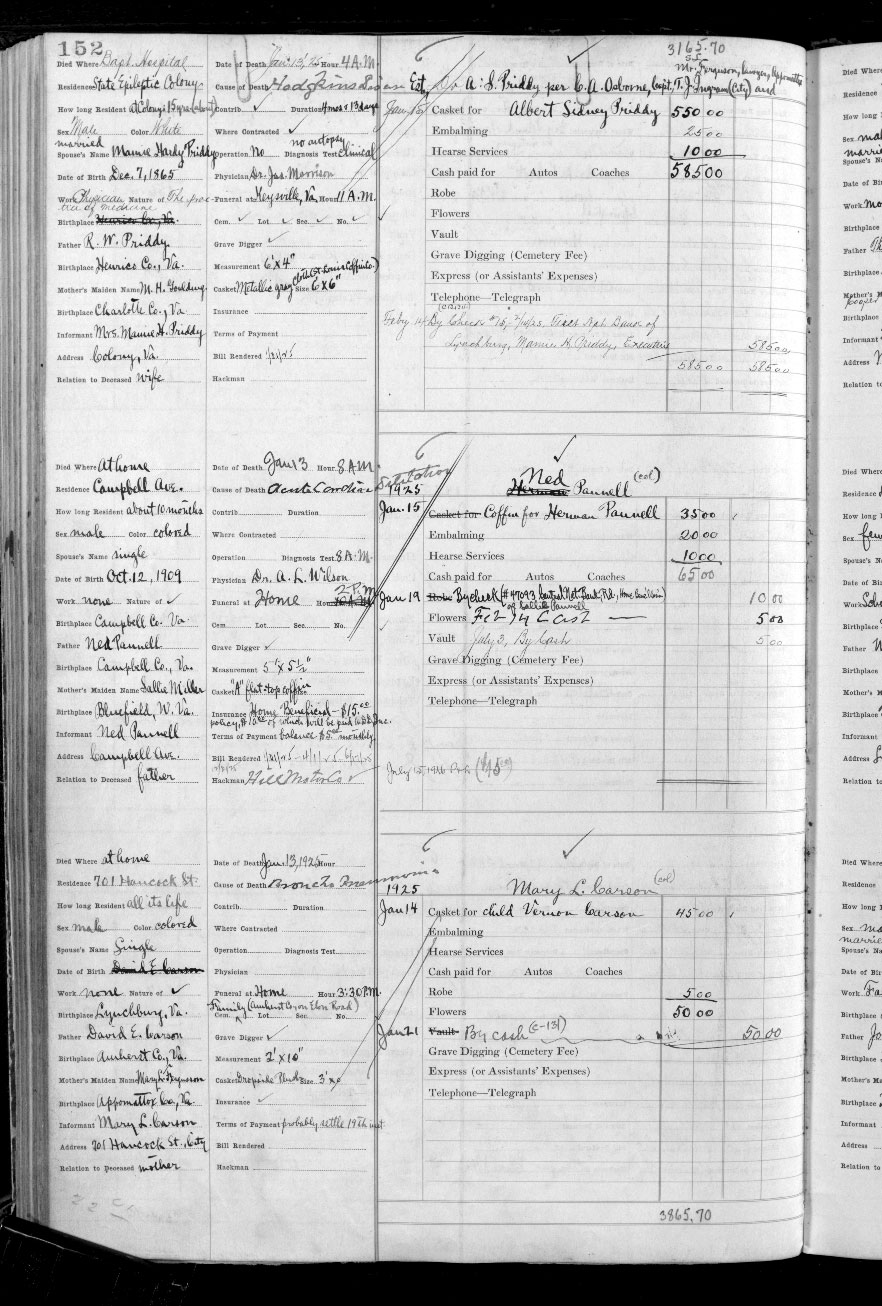 152
3165.70
Died Where Bapt. Hospital
Residence State Epileptic Colony
How long Resident at Colony 15 years (about)
Sex Male Color White
married
Spouse's Name Mamie Hardy Priddy
Date of Birth Dec. 7, 1865
Work Physician Nature of The prac-
tice of medicine
Birthplace Henrico Co., Va.
Father R. W. Priddy
Birthplace Henrico Co., Va.
Mother's Maiden Name M. H. Goulding
Birthplace Charlotte Co., Va
Informant Mrs. Mamie H. Priddy
Address Colony, Va.
Relation to Deceased wife
Date of Death Jan. 13, '25 Hour 4 A.M.
Cause of Death Hodgkins Disease
Contrib. ✓ Duration 4 mos & 13 days
Where Contracted ✓
no autopsy
Operation No Diagnosis Test Clinical
Physician Dr. Jas. Morrison
Funeral at Keysville, Va. Hour 11 A.M.
Cem. ✓ Lot ✓ Sec. ✓ No. ✓
Grave Digger ✓
Measurement 6' x 4"
cloth (St. Louis Coffin Co.)
Casket Metallic gray Size 6'x6"
Insurance
Terms of Payment
Bill Rendered 1/21/25
Hackman
Mr. Ferguson, lawyer, Appomattox
Est. Dr. A. S. Priddy per C. A. Osborne, Capt., T. J. Ingram (City) and
Jan. 15 Casket for Albert Sidney Priddy 550 00
Embalming 25 00
Hearse Services 10 00
Cash paid for Autos Coaches 585 00
Robe
Flowers
Vault
Grave Digging (Cemetery Fee)
Express (or Assistants' Expenses)
Telephone—Telegraph
Feby 14 By Check #15, 2/10/25, First Nat. Bank of
Lynchburg, Mamie H. Priddy, Executrix 585 00
585 00 585 00
Died Where At home
Residence Campbell Ave.
How long Resident about 10 months
Sex male Color colored
Spouse's Name single
Date of Birth Oct. 12, 1909
Work none Nature of ✓
Birthplace Campbell Co. Va.
Father Ned Pannell
Birthplace Campbell Co., Va.
Mother's Maiden Name Sallie Miller
Birthplace Bluefield, W. Va.
Informant Ned Pannell
Address Campbell Ave.
Relation to Deceased father
Date of Death Jan 13 Hour 8 A.M.
Cause of Death Acute Cardiac Dilitation
Contrib. Duration
Where Contracted
Operation Diagnosis Test 8 A.M.
Physician Dr. A. L. Wilson
2 P.M.
Funeral at Home Hour 10 A.M.
Cem. Lot Sec. No.
Grave Digger ✓
Measurement 5' x 5½"
Casket "A" flat-top coffin
Insurance Home Beneficial - $15.00
policy, $10.00 of which will be paid to
Terms of Payment balance $5.00 monthly
Bill Rendered
Hackman Hill Motor Co ✓
1925
Ned
Herman Pannell (col)
Jan. 15 Casket for Coffin for Herman Pannell 35 00
Embalming 20 00
Hearse Services 10 00
Cash paid for Autos Coaches 65 00
Jan 19 Robe By check (#47093, Central Nat. Bank, Rd., Home Ben'l Co.) 10 00
of Sallie Pannell
Flowers Feb 14 Cash 5 00
Vault July 3, By Cash 5 00
Grave Digging (Cemetery Fee)
Express (or Assistants' Expenses)
Telephone—Telegraph
July 15, 1926
Died Where at home
Residence 701 Hancock St.
How long Resident all its life
Sex male Color colored
Spouse's Name Single
Date of Birth David E. Carson
Work none Nature of ✓
Birthplace Lynchburg, Va.
Father David E. Carson
Birthplace Amherst Co., Va.
Mother's Maiden Name Mary L. Ferguson
Birthplace Appomattox Co., Va
Informant Mary L. Carson
Address 701 Hancock St., City
Relation to Deceased mother
Date of Death Jan. 13, 1925 Hour
Cause of Death Broncho Pneumonia
Contrib. Duration
Where Contracted
Operation Diagnosis Test
Physician
Funeral at Home Hour 3:30 P.M.
Family (Amherst Co., on Elon Road)
Cem. Lot Sec. No.
Grave Digger ✓
Measurement 2' x 10"
Casket Dropside Size 3'
Insurance ✓
Terms of Payment probably settle 19th inst
Bill Rendered
Hackman
1925
Mary L. Carson (col)
Jan 14 Casket for child Vernon Carson 45 00
Embalming
Hearse Services
Cash paid for Autos Coaches
Robe 5 00
Flowers 50 00
Jan 21 Vault By cash (C-131) 50 00
Grave Digging (Cemetery Fee)
Express (or Assistants' Expenses)
Telephone—Telegraph
3865.70